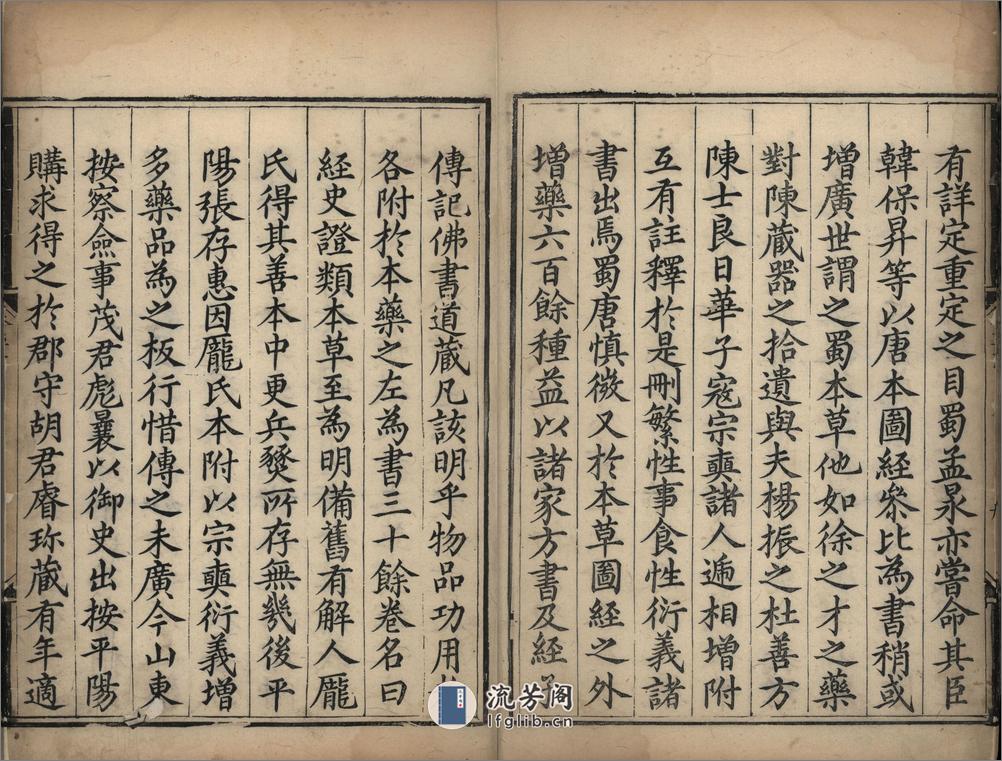 有詳定重定之目蜀孟泉亦嘗命其臣
韓保昇等以唐本圖經叅比為書稍或
增廣世謂之蜀本草他如徐之才之藥
對陳蔵器之拾遺與夫楊振之杜善方
陳士良日華子寇宗奭諸人遞相增附
互有註釋於是刪繁性事食性衍義諸
書出焉蜀唐慎微又於本草圖經之外
增藥六百餘種益以諸家方書及經
傳記佛書道蔵凡該明乎物品功用
各附於本藥之左為書三十餘卷名曰
經史證類本草至為明備舊有解人龐
氏得其善本中更兵燹所存無幾後平
陽張存惠因龐氏本附以宗奭衍義增
多藥品為之板行惜傳之未廣今山東
按察僉事茂君彪曩以御史出按平陽
購求得之於郡守胡君睿珎蔵有年適
流芳阁
lfglib.cn